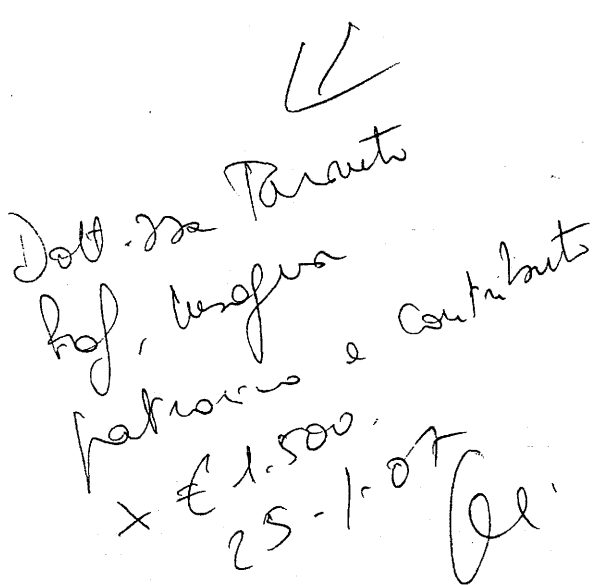 Dott.ssa Taranto
Prof.
patrocinio e contributo
x € 1.500.
25-1-07